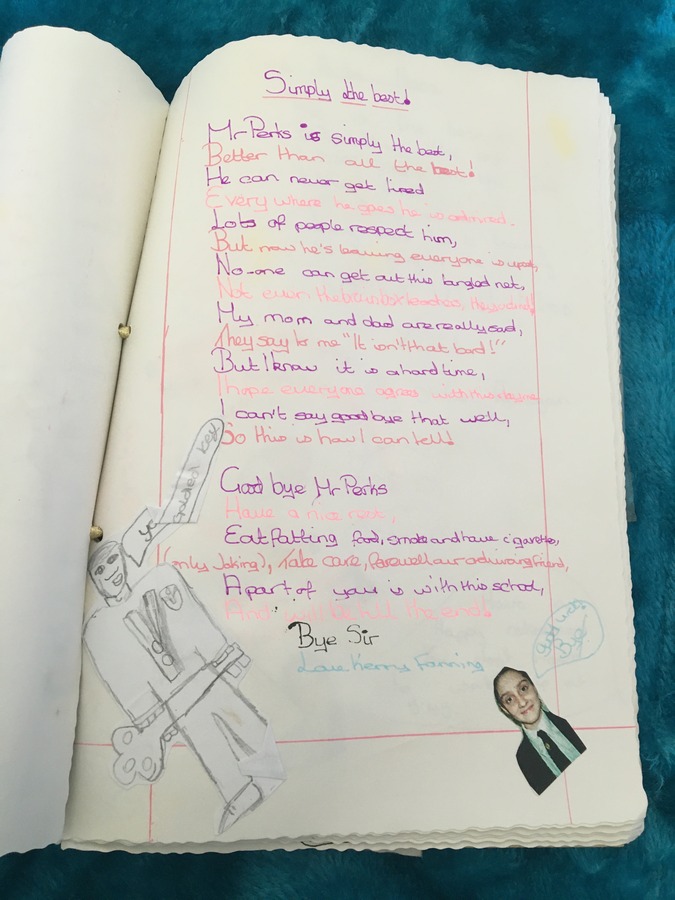 Simply the best!
Mr Perks is simply the best,
Better than all the best!
He can never get tired
Every where he goes he is admired.
Lots of people respect him,
But now he's leaving everyone is upset,
No-one can get out this tangled net,
Not even the brainbox teachers,
My mom and dad are really sad,
They say to me "It isn't that bad!"
But I know it is a hard time,
I hope everyone agrees with this rhyme
I can't say goodbye that well,
So this is how I can tell!
Good bye Mr Perks
Have a nice rest,
Eat fatting food, smoke and have cigarettes,
(only Joking), Take care, farewell our friend,
A part of you is with this school,
And will be till the end!
Bye Sir
Love Kerry Fanning
golden key
Good luck
Bye